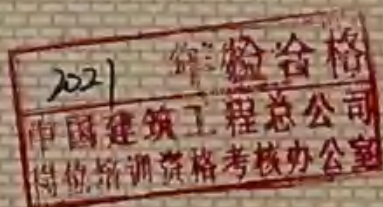 2021 年检合格
中国建筑工程总公司
岗位培训资格考核办公室